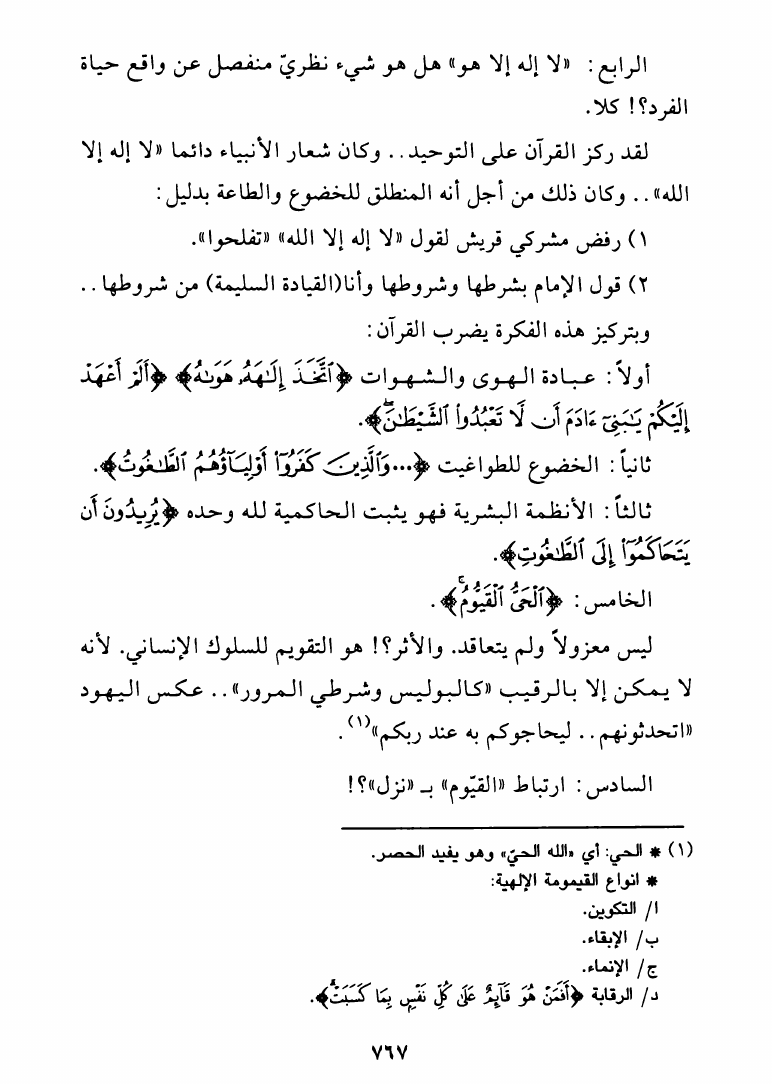 الرابع: «لا إله إلا هو» هل هو شيء نظريّ منفصل عن واقع حياة
الفرد؟! كلا.
لقد ركز القرآن على التوحيد.. وكان شعار الأنبياء دائما «لا إله إلا
الله».. وكان ذلك من أجل أنه المنطلق للخضوع والطاعة بدليل:
١) رفض مشركي قريش لقول «لا إله إلا الله» «تفلحوا».
٢) قول الإمام بشرطها وشروطها وأنا(القيادة السليمة) من شروطها..
وبتركيز هذه الفكرة يضرب القرآن:
أولاً: عبادة الهوى والشهوات ﴿ٱتَّخَذَ إِلَٰهَهُۥ هَوَىٰهُ﴾ ﴿أَلَمْ أَعْهَدْ
إِلَيْكُمْ يَٰبَنِىٓ ءَادَمَ أَن لَّا تَعْبُدُوا۟ ٱلشَّيْطَٰنَۖ﴾.
ثانياً: الخضوع للطواغيت ﴿...وَٱلَّذِينَ كَفَرُوٓا۟ أَوْلِيَآؤُهُمُ ٱلطَّٰغُوتُ﴾.
ثالثاً: الأنظمة البشرية فهو يثبت الحاكمية لله وحده ﴿يُرِيدُونَ أَن
يَتَحَاكَمُوٓا۟ إِلَى ٱلطَّٰغُوتِ﴾.
الخامس: ﴿ٱلْحَىُّ ٱلْقَيُّومُۚ﴾.
ليس معزولاً ولم يتعاقد. والأثر؟! هو التقويم للسلوك الإنساني. لأنه
لا يمكن إلا بالرقيب «كالبوليس وشرطي المرور».. عكس اليهود
«اتحدثونهم.. ليحاجوكم به عند ربكم»(١).
السادس: ارتباط «القيّوم» بـ «نزل»؟!
(١) * الحي: أي «الله الحيّ» وهو يفيد الحصر.
* انواع القيمومة الإلهية:
ا/ التكوين.
ب/ الإبقاء.
ج/ الإنماء.
د/ الرقابة ﴿أَفَمَنْ هُوَ قَآئِمٌ عَلَىٰ كُلِّ نَفْسٍۭ بِمَا كَسَبَتْۗ﴾.
٧٦٧